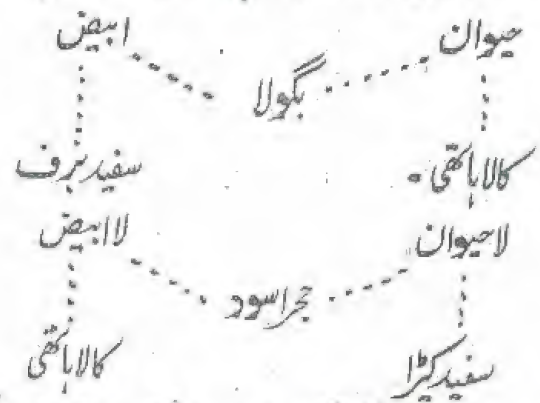 حیوان ابیض
بگولا
کالا ہاتھی سفید برف
لا حیوان لا ابیض
حجر اسود
سفید کپڑا کالا ہاتھی